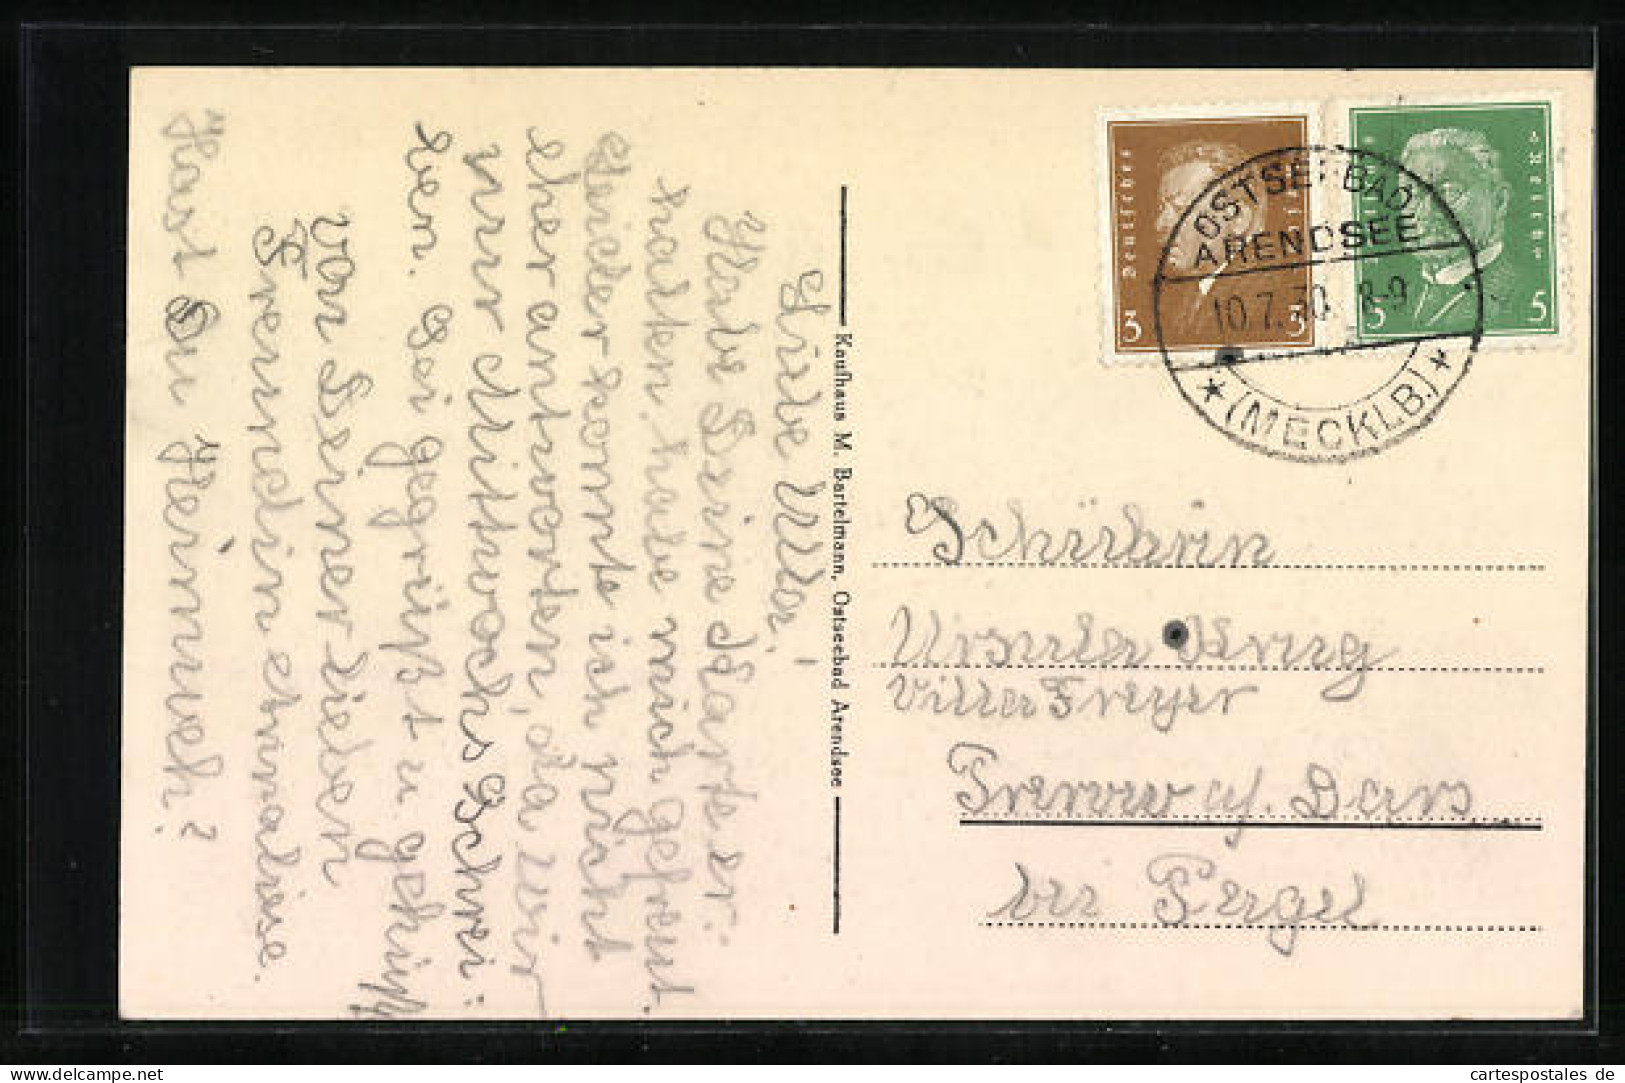 Liebe Ulla!
Habe Deine Karte er-
halten. habe mich gefreut.
Leider konnte ich nicht
eher antworten, da wir
nur Mittwochs Schrei-
ben. Sei gegrüßt u. geküßt
von Deiner lieben
Freundin Annaliese.
Hast Du Heimweh?
Kaufhaus M. Bartelmann, Ostseebad Arendsee
Deutsches
3 3
5 5
OSTSEEBAD
ARENDSEE
10.7.30. 8-9
(MECKLB.)
Schülerin
Ursula Krug
Villa Freyer
Prerow a/. Dars
bei
cartespostales de